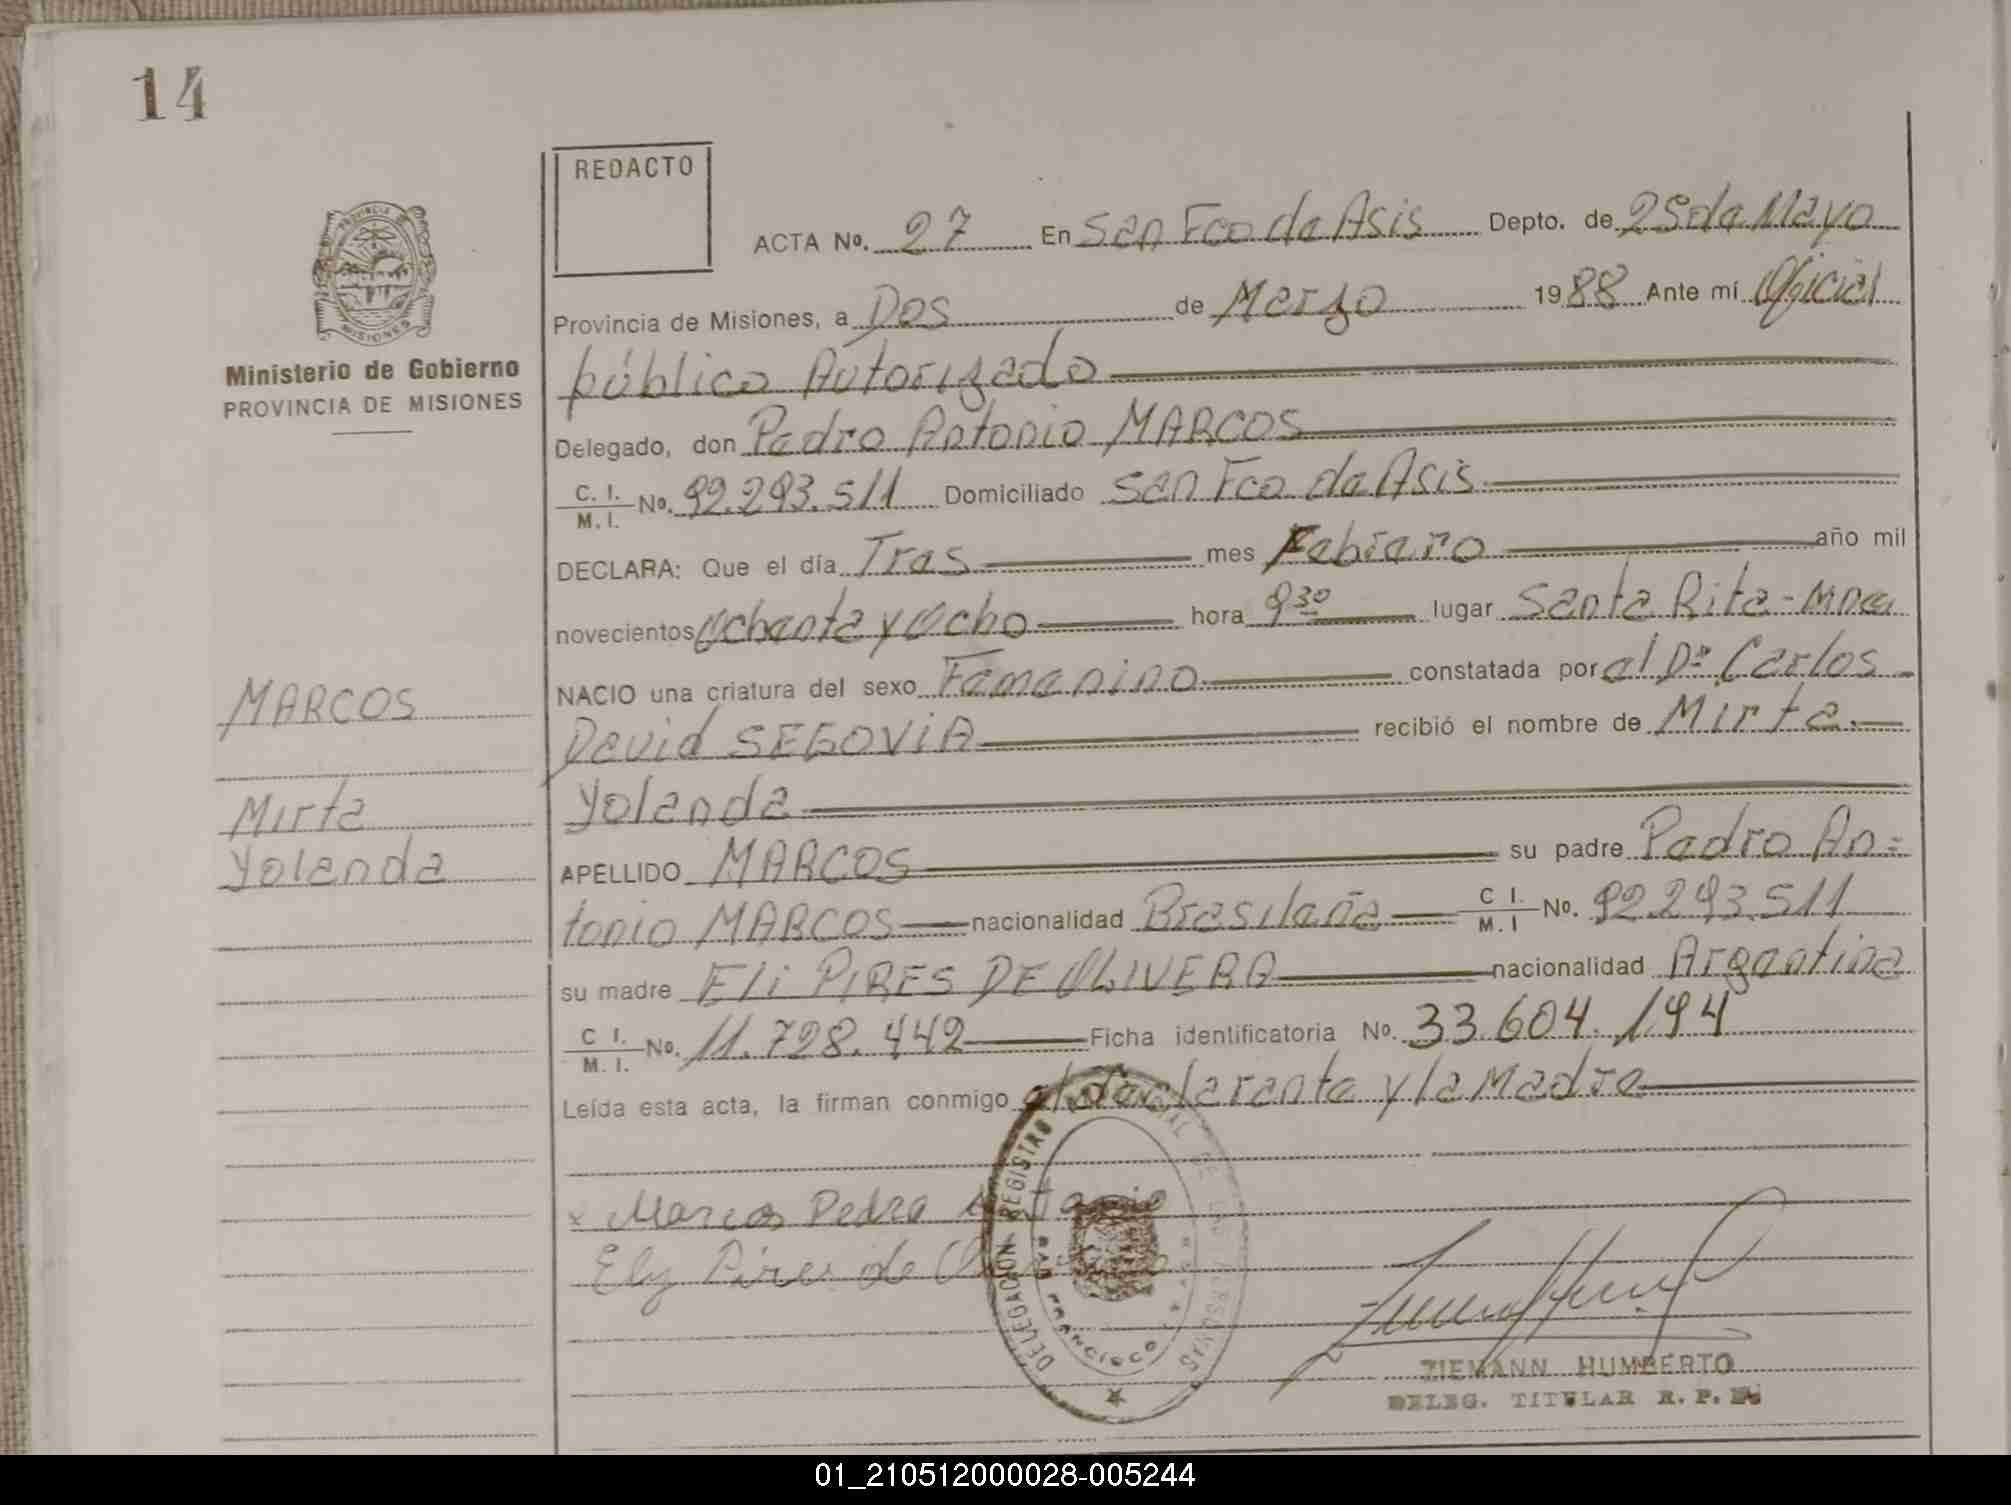 14
REDACTO
ACTA Nº. 27 En San Fco de Asis Depto. de 25 de Mayo
Provincia de Misiones, a Dos de Marzo 1988 Ante mí Oficial
público Autorizado
Ministerio de Gobierno
PROVINCIA DE MISIONES
Delegado, don Pedro Antonio MARCOS
C. I. / M. I. Nº. 92.293.511 Domiciliado San Fco de Asis
DECLARA: Que el día Tres mes Febrero año mil
novecientos Ochenta y Ocho hora 9 30 lugar Santa Rita - Mnes
NACIO una criatura del sexo Femenino constatada por el Dr. Carlos
David SEGOVIA recibió el nombre de Mirta
Yolanda
APELLIDO MARCOS su padre Pedro An=
tonio MARCOS nacionalidad Brasileña C I. / M. I Nº. 92.293.511
su madre Eli PIRES DE OLIVERA nacionalidad Argentina
C I. / M. I. Nº. 11.728.442 Ficha identificatoria Nº. 33.604.194
Leída esta acta, la firman conmigo el declarante y la Madre
MARCOS
Mirta
Yolanda
x Marcos Pedro Antonio
Ely Pires de
DELEGACION REGISTRO DE LAS PERSONAS
SAN FRANCISCO
ZIEMANN HUMBERTO
DELEG. TITULAR R. P.
01_210512000028-005244